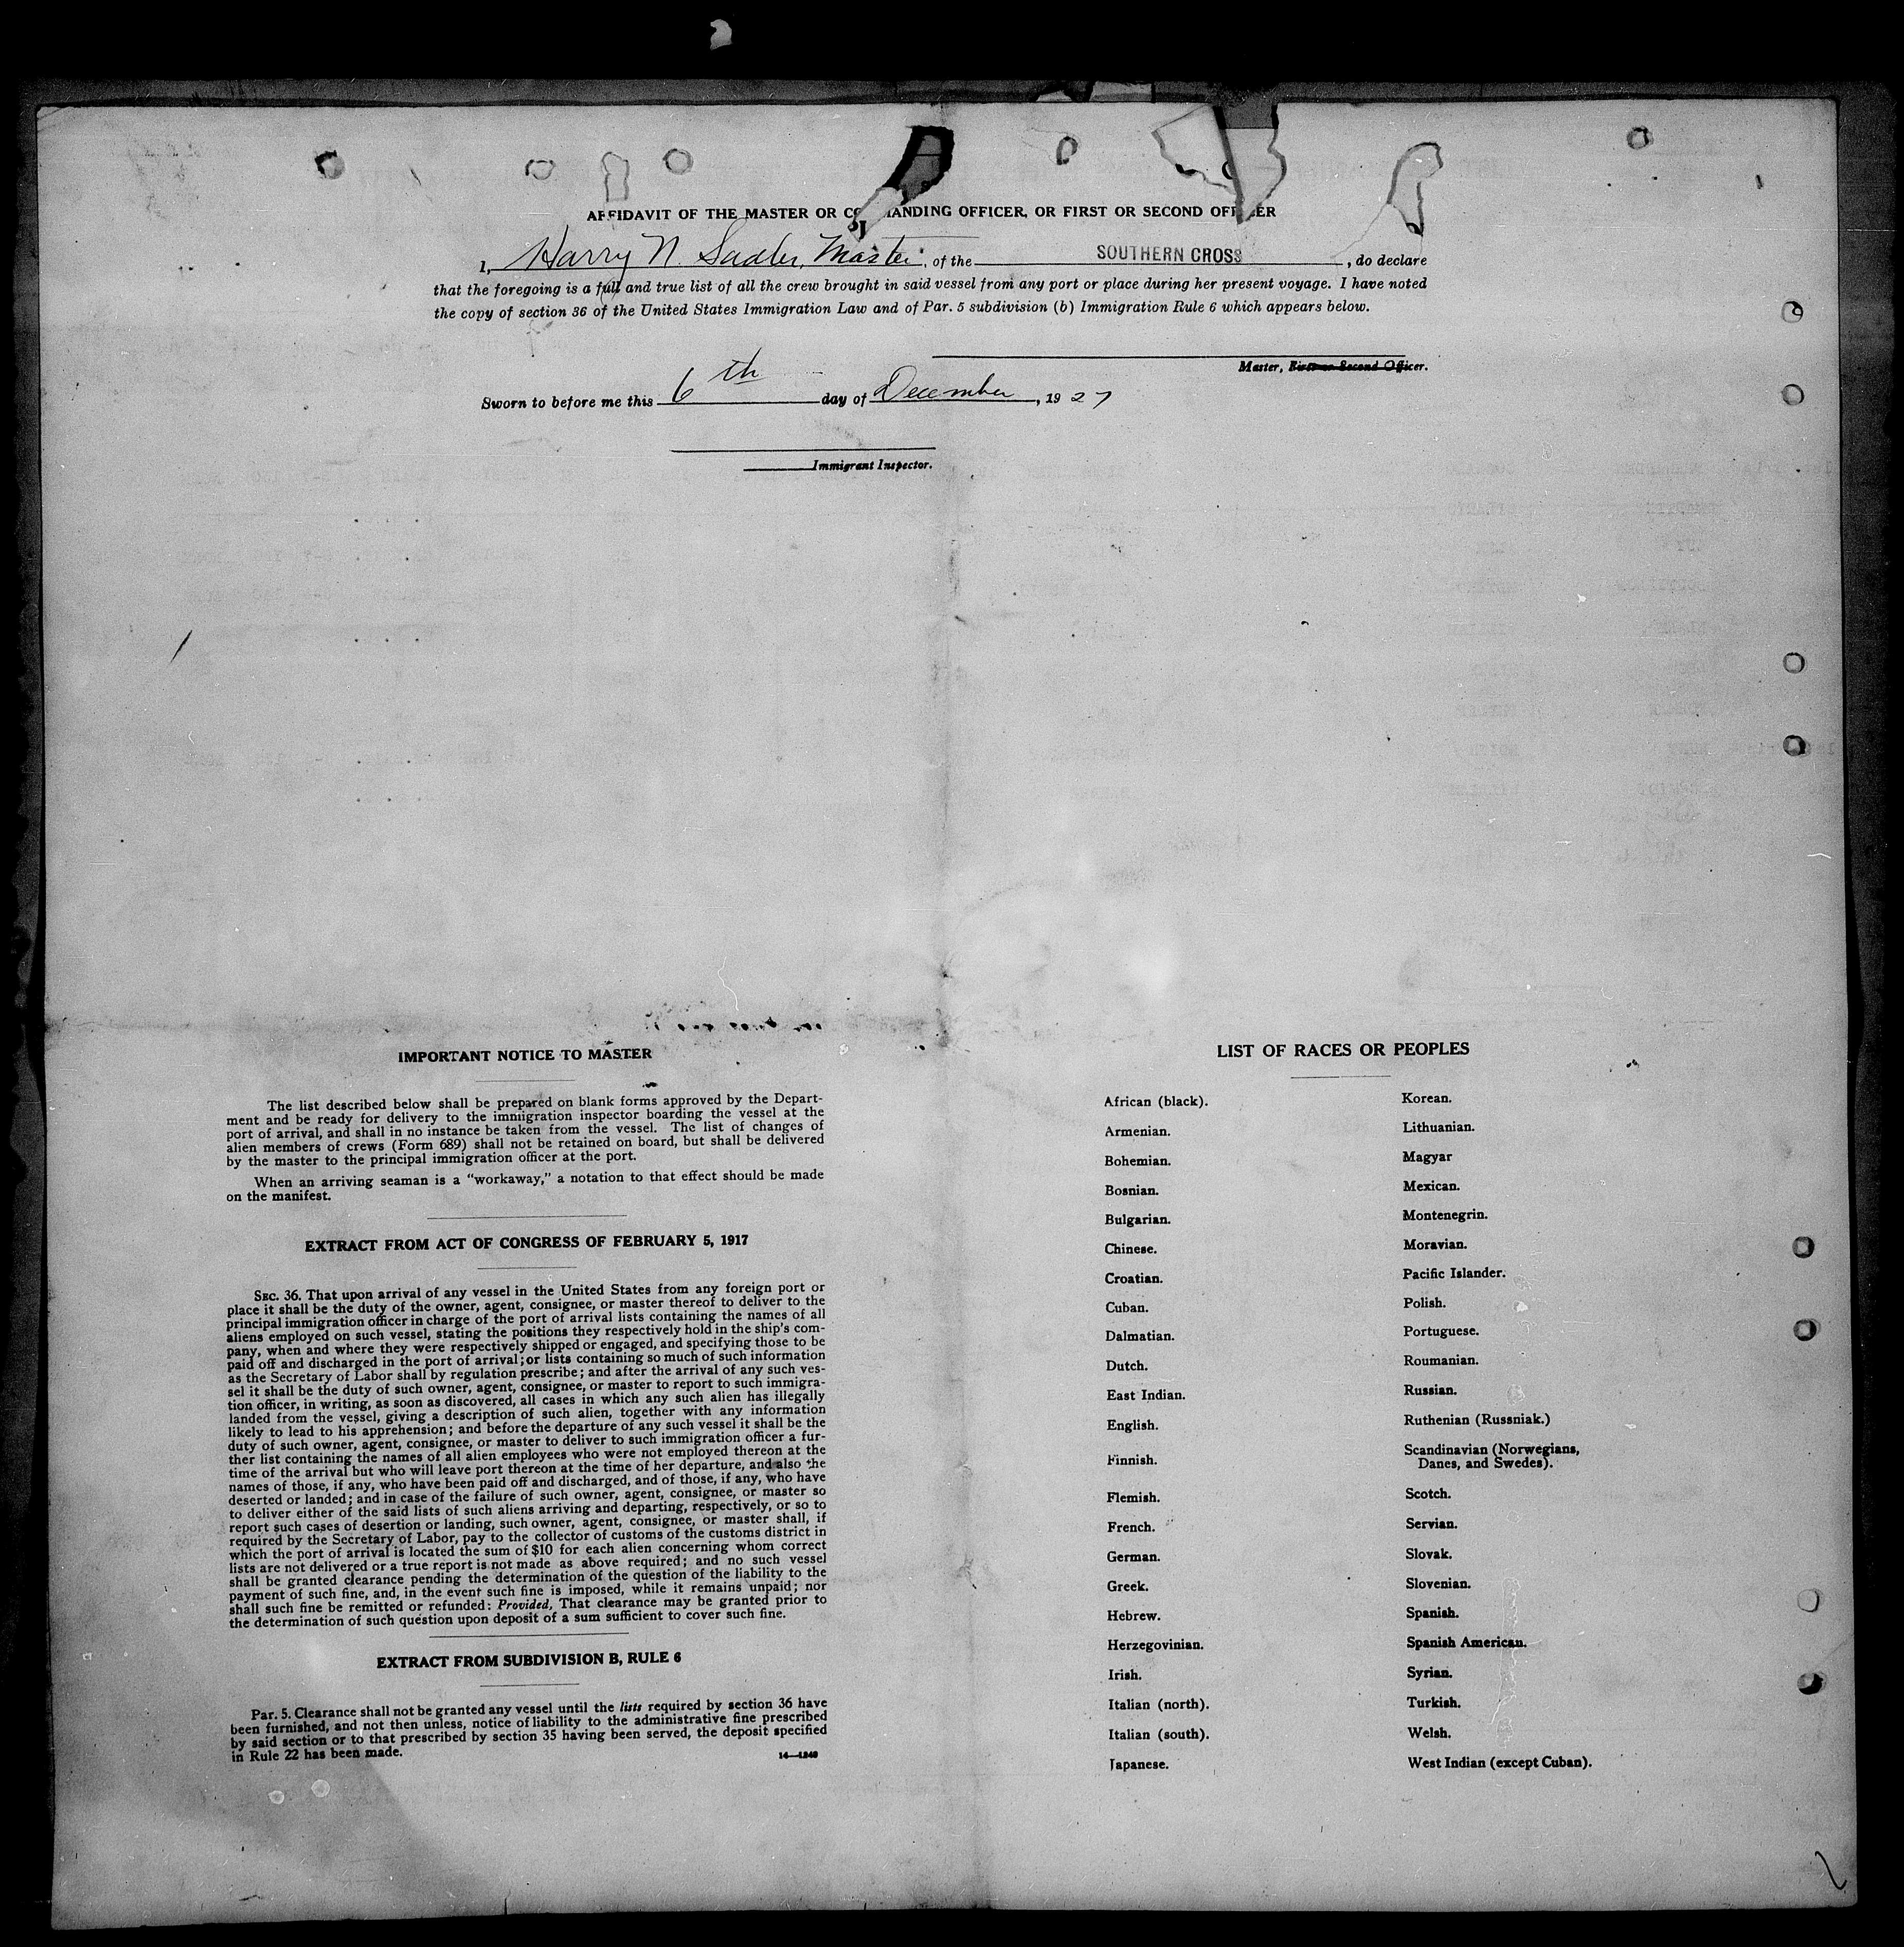 AFFIDAVIT OF THE MASTER OR COMMANDING OFFICER, OR FIRST OR SECOND OFFICER
I, Harry N. Sadler, Master, of the SOUTHERN CROSS, do declare
that the foregoing is a full and true list of all the crew brought in said vessel from any port or place during her present voyage. I have noted
the copy of section 36 of the United States Immigration Law and of Par. 5 subdivision (b) Immigration Rule 6 which appears below.
Master, First or Second Officer.
Sworn to before me this 6th day of December, 1927
Immigrant Inspector.
IMPORTANT NOTICE TO MASTER
The list described below shall be prepared on blank forms approved by the Depart-
ment and be ready for delivery to the immigration inspector boarding the vessel at the
port of arrival, and shall in no instance be taken from the vessel. The list of changes of
alien members of crews (Form 689) shall not be retained on board, but shall be delivered
by the master to the principal immigration officer at the port.
When an arriving seaman is a "workaway," a notation to that effect should be made
on the manifest.
EXTRACT FROM ACT OF CONGRESS OF FEBRUARY 5, 1917
SEC. 36. That upon arrival of any vessel in the United States from any foreign port or
place it shall be the duty of the owner, agent, consignee, or master thereof to deliver to the
principal immigration officer in charge of the port of arrival lists containing the names of all
aliens employed on such vessel, stating the positions they respectively hold in the ship's com-
pany, when and where they were respectively shipped or engaged, and specifying those to be
paid off and discharged in the port of arrival; or lists containing so much of such information
as the Secretary of Labor shall by regulation prescribe; and after the arrival of any such ves-
sel it shall be the duty of such owner, agent, consignee, or master to report to such immigra-
tion officer, in writing, as soon as discovered, all cases in which any such alien has illegally
landed from the vessel, giving a description of such alien, together with any information
likely to lead to his apprehension; and before the departure of any such vessel it shall be the
duty of such owner, agent, consignee, or master to deliver to such immigration officer a fur-
ther list containing the names of all alien employees who were not employed thereon at the
time of the arrival but who will leave port thereon at the time of her departure, and also the
names of those, if any, who have been paid off and discharged, and of those, if any, who have
deserted or landed; and in case of the failure of such owner, agent, consignee, or master so
to deliver either of the said lists of such aliens arriving and departing, respectively, or so to
report such cases of desertion or landing, such owner, agent, consignee, or master shall, if
required by the Secretary of Labor, pay to the collector of customs of the customs district in
which the port of arrival is located the sum of $10 for each alien concerning whom correct
lists are not delivered or a true report is not made as above required; and no such vessel
shall be granted clearance pending the determination of the question of the liability to the
payment of such fine, and, in the event such fine is imposed, while it remains unpaid; nor
shall such fine be remitted or refunded: Provided, That clearance may be granted prior to
the determination of such question upon deposit of a sum sufficient to cover such fine.
EXTRACT FROM SUBDIVISION B, RULE 6
Par. 5. Clearance shall not be granted any vessel until the lists required by section 36 have
been furnished, and not then unless, notice of liability to the administrative fine prescribed
by said section or to that prescribed by section 35 having been served, the deposit specified
in Rule 22 has been made.
14—1240
LIST OF RACES OR PEOPLES
African (black).
Armenian.
Bohemian.
Bosnian.
Bulgarian.
Chinese.
Croatian.
Cuban.
Dalmatian.
Dutch.
East Indian.
English.
Finnish.
Flemish.
French.
German.
Greek.
Hebrew.
Herzegovinian.
Irish.
Italian (north).
Italian (south).
Japanese.
Korean.
Lithuanian.
Magyar
Mexican.
Montenegrin.
Moravian.
Pacific Islander.
Polish.
Portuguese.
Roumanian.
Russian.
Ruthenian (Russniak.)
Scandinavian (Norwegians,
Danes, and Swedes).
Scotch.
Servian.
Slovak.
Slovenian.
Spanish.
Spanish American.
Syrian.
Turkish.
Welsh.
West Indian (except Cuban).